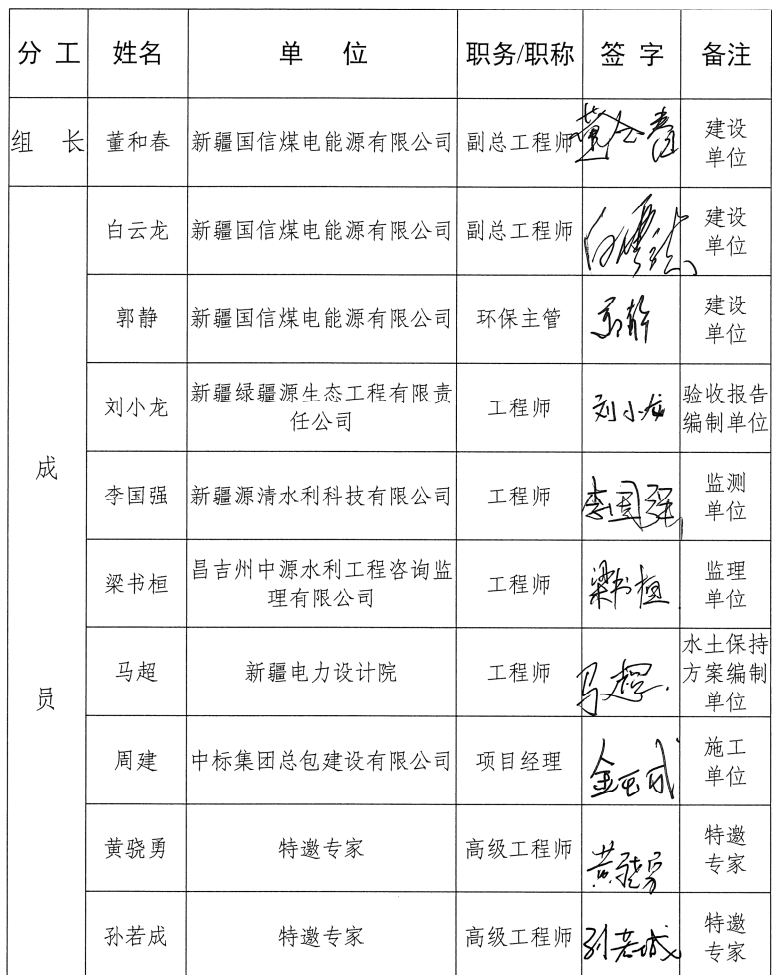 分 工 姓名 单 位 职务/职称 签 字 备注
组 长 董和春 新疆国信煤电能源有限公司 副总工程师 董合春 建设
单位
白云龙 新疆国信煤电能源有限公司 副总工程师 白云龙 建设
单位
郭静 新疆国信煤电能源有限公司 环保主管 郭静 建设
单位
刘小龙 新疆绿疆源生态工程有限责
任公司 工程师 刘小龙 验收报告
编制单位
成 李国强 新疆源清水利科技有限公司 工程师 李国强 监测
单位
梁书桓 昌吉州中源水利工程咨询监
理有限公司 工程师 梁书桓 监理
单位
员 马超 新疆电力设计院 工程师 马超 水土保持
方案编制
单位
周建 中标集团总包建设有限公司 项目经理 施工
单位
黄骁勇 特邀专家 高级工程师 黄骁勇 特邀
专家
孙若成 特邀专家 高级工程师 孙若成 特邀
专家